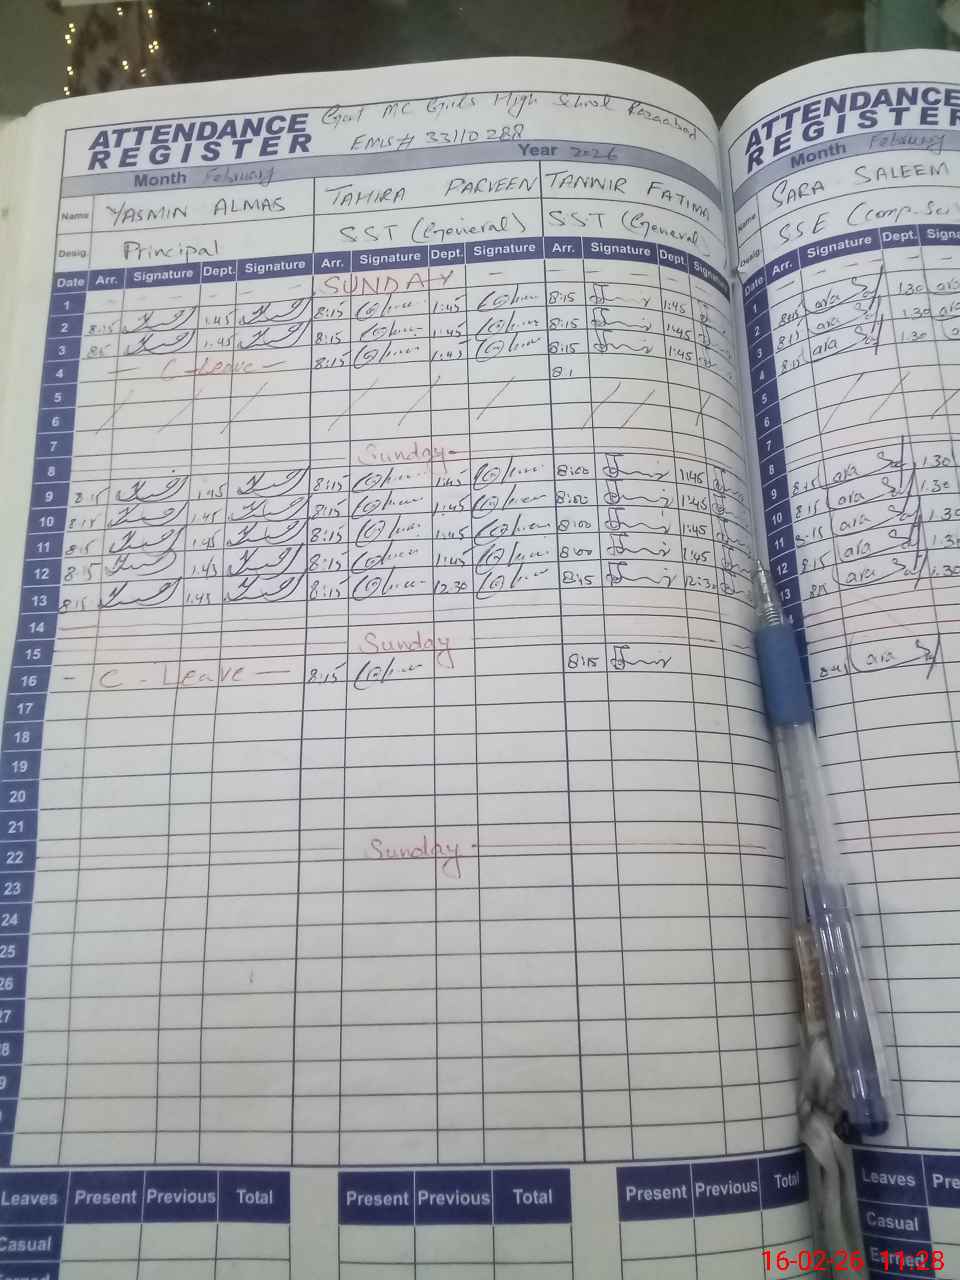 ATTENDANCE REGISTER
Govt MC Girls High School Razaabad
EMIS# 33110288
Month February Year 2026
Name YASMIN ALMAS TAHIRA PARVEEN TANWIR FATIMA
Desig. Principal SST (General) SST (General)
Date Arr. Signature Dept. Signature Arr. Signature Dept. Signature Arr. Signature Dept. Signature
1 SUNDAY
2 8:15 1:45 8:15 1:45 8:15 1:45
3 8:15 1:45 8:15 1:45 8:15 1:45
4 C-Leave 8:15 1:45 8:15 1:45
5 8:1
6
7
8 Sunday
9 8:15 1:45 8:15 1:45 8:00 1:45
10 8:15 1:45 8:15 1:45 8:00 1:45
11 8:15 1:45 8:15 1:45 8:00 1:45
12 8:15 1:45 8:15 1:45 8:00 1:45
13 8:15 1:45 8:15 12:30 8:15 12:30
14
15 Sunday
16 C. Leave 8:15 8:15
17
18
19
20
21
22 Sunday
23
24
25
26
27
8
9
Leaves Present Previous Total Present Previous Total Present Previous Total
Casual
Earned
ATTENDANCE
REGISTER
Month February
Name SARA SALEEM
Desig. SSE (Comp. Sci
Date Arr. Signature Dept. Signa
1
2 8:15 1:30
3 8:15 1:30
4 8:15 1:30
5
6
7
8
9 8:15 1.30
10 8:15 1.30
11 8:15 1.30
12 8:15 1.30
13 8:15 1.30
Leaves Pre
Casual
Earned
16-02-26 11:28